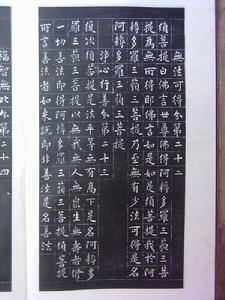 無法可得分第二十二
須菩提白佛言世尊佛得阿耨多羅三藐三菩
提為無所得耶佛言如是如是須菩提我於阿
耨多羅三藐三菩提乃至無有少法可得是名
阿耨多羅三藐三菩提
淨心行善分第二十三
復次須菩提是法平等無有高下是名阿耨多
羅三藐三菩提以無我無人無衆生無壽者修
一切善法即得阿耨多羅三藐三菩提須菩提
所言善法者如来說即非善法是名善法
福智無比分第二十四